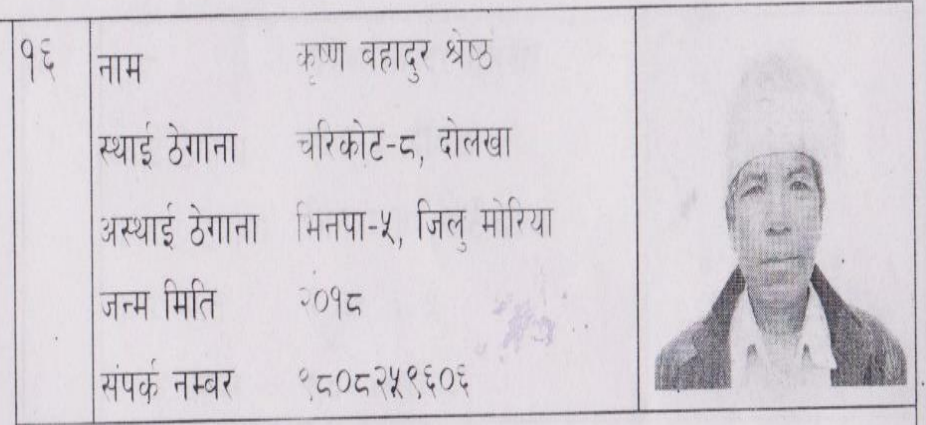 १६ नाम कृष्ण वहादुर श्रेष्ठ
स्थाई ठेगाना चरिकोट-८, दोलखा
अस्थाई ठेगाना भिनपा-५, जिलु मोरिया
जन्म मिति २०१८
संपर्क नम्वर ९८०८२५९६०६